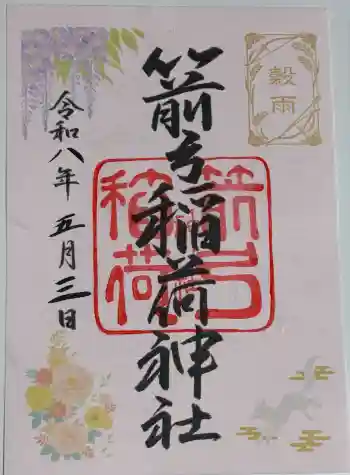 穀雨
箭弓稲荷神社
箭弓
稲荷
令和八年 五月三日